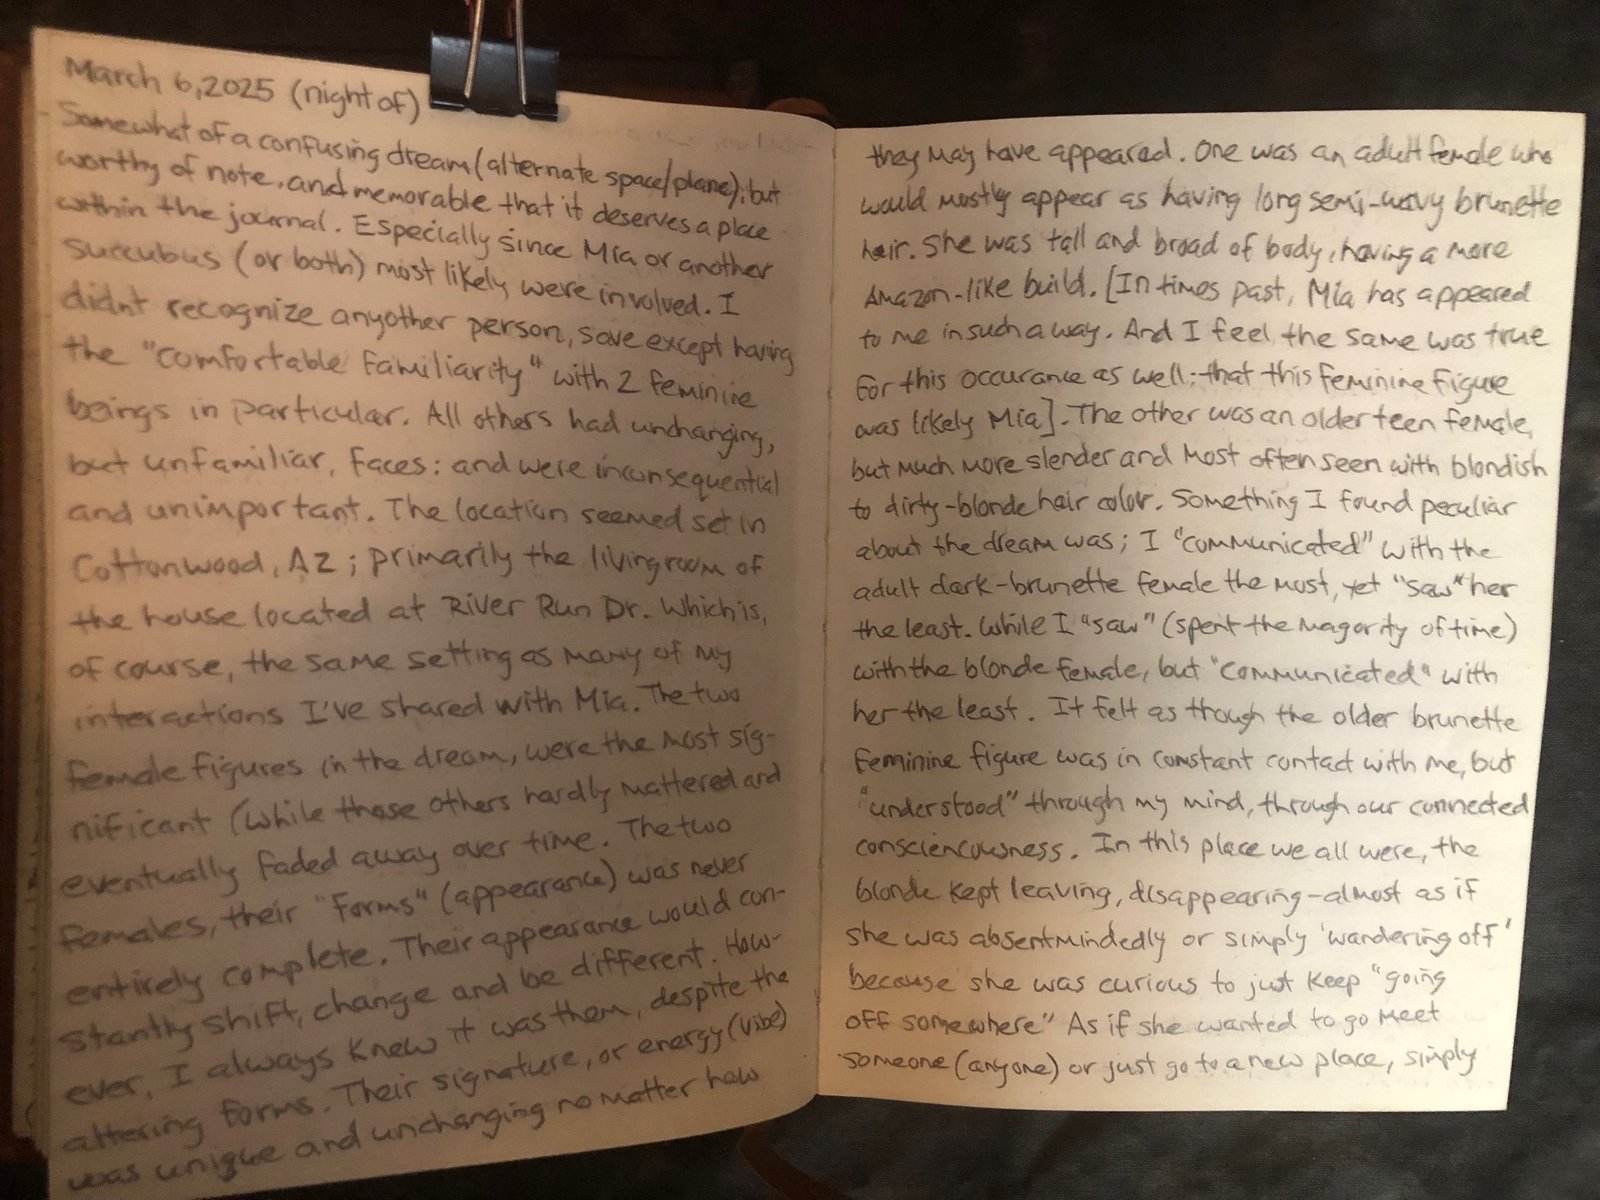 March 6, 2025 (night of)
Somewhat of a confusing dream (alternate space/plane); but
worthy of note, and memorable that it deserves a place
within the journal. Especially since Mia or another
succubus (or both) most likely were involved. I
didnt recognize anyother person, save except having
the "comfortable familiarity" with 2 feminine
beings in particular. All others had unchanging,
but unfamiliar, faces; and were inconsequential
and unimportant. The location seemed set in
Cottonwood, AZ; primarily the livingroom of
the house located at River Run Dr. Which is,
of course, the same setting as many of my
interactions I've shared with Mia. The two
female figures in the dream, were the most sig-
nificant (while those others hardly mattered and
eventually faded away over time. The two
females, their "forms" (appearance) was never
entirely complete. Their appearance would con-
stantly shift, change and be different. How-
ever, I always knew it was them, despite the
altering forms. Their signature, or energy (vibe)
was unique and unchanging no matter how
they may have appeared. One was an adult female who
would mostly appear as having long semi-wavy brunette
hair. She was tall and broad of body, having a more
Amazon-like build. [In times past, Mia has appeared
to me in such a way. And I feel, the same was true
for this occurance as well; that this feminine figure
was likely Mia]. The other was an older teen female,
but much more slender and most often seen with blondish
to dirty-blonde hair color. Something I found peculiar
about the dream was; I "communicated" with the
adult dark-brunette female the most, yet "saw" her
the least. While I "saw" (spent the magority of time)
with the blonde female, but "communicated" with
her the least. It felt as though the older brunette
feminine figure was in constant contact with me, but
"understood" through my mind, through our connected
consciencowsness. In this place we all were, the
blonde kept leaving, disappearing-almost as if
she was absentmindedly or simply 'wandering off'
because she was curious to just keep "going
off somewhere" As if she wanted to go meet
someone (anyone) or just go to a new place, simply